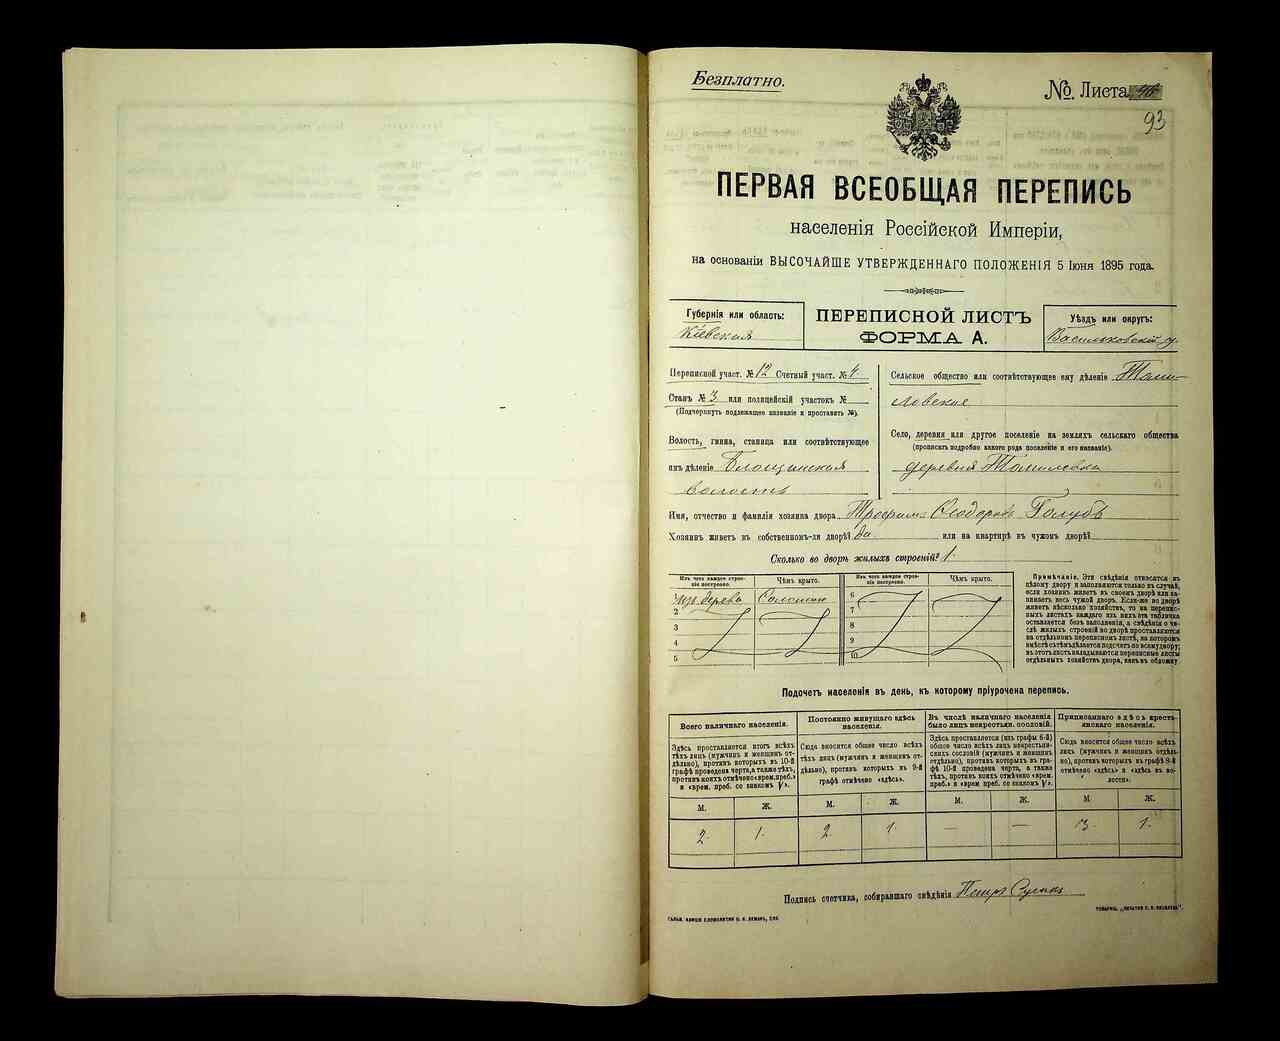 Безплатно.
№ Листа
93
ПЕРВАЯ ВСЕОБЩАЯ ПЕРЕПИСЬ
населенія Россійской Имперіи,
на основаніи ВЫСОЧАЙШЕ УТВЕРЖДЕННАГО ПОЛОЖЕНІЯ 5 Іюня 1895 года.
Губернія или область:
Кіевская
ПЕРЕПИСНОЙ ЛИСТЪ
ФОРМА А.
Уѣздъ или округъ:
Васильковскій у.
Переписной участ. № 12 Счетный участ. № 4.
Станъ № 3 или полицейскій участокъ №
(Подчеркнуть подлежащее названіе и проставить №).
Волость, гмина, станица или соотвѣтствующее
имъ дѣленіе Блощинская
волость
Сельское общество или соотвѣтствующее ему дѣленіе Томи-
ловское
Село, деревня или другое поселеніе на земляхъ сельскаго общества
(прописать подробно какого рода поселеніе и его названіе).
деревня Томиловка
Имя, отчество и фамилія хозяина двора Трофимъ Ѳеодоровъ Голубъ
Хозяинъ живетъ въ собственномъ-ли дворѣ? да или на квартирѣ въ чужомъ дворѣ?
Сколько во дворѣ жилыхъ строеній? 1.
Изъ чего каждое строеніе построено. Чѣмъ крыто. Изъ чего каждое строеніе построено. Чѣмъ крыто.
изъ дерева Соломою 6
2 7
3 8
4 9
5 10
Примѣчаніе. Эти свѣдѣнія относятся къ
цѣлому двору и заполняются только въ случаѣ,
если хозяинъ живетъ въ своемъ дворѣ или за-
нимаетъ весь чужой дворъ. Если-же во дворѣ
живетъ нѣсколько хозяйствъ, то на перепис-
ныхъ листахъ каждаго изъ нихъ эта табличка
оставляется безъ заполненія, а свѣдѣнія о чи-
слѣ жилыхъ строеній во дворѣ проставляются
на отдѣльномъ переписномъ листѣ, на которомъ
вмѣстѣ съ тѣмъ дѣлается подсчетъ по всему двору;
въ этотъ листъ вкладываются переписные листы
отдѣльныхъ хозяйствъ двора, какъ въ обложку.
Подсчетъ населенія въ день, къ которому пріурочена перепись.
Всего наличнаго населенія.
Здѣсь проставляется итогъ всѣхъ
тѣхъ лицъ (мужчинъ и женщинъ от-
дѣльно), противъ которыхъ въ 10-й
графѣ проведена черта, а также тѣхъ,
противъ коихъ отмѣчено «врем. преб.»
и «врем. преб. со знакомъ V».
Постоянно живущаго здѣсь
населенія.
Сюда вносится общее число всѣхъ
тѣхъ лицъ (мужчинъ и женщинъ от-
дѣльно), противъ которыхъ въ 9-й
графѣ отмѣчено «здѣсь».
Въ числѣ наличнаго населенія
было лицъ некрестьян. сословій.
Здѣсь проставляется (изъ графы 6-й)
общее число всѣхъ лицъ некрестьян-
скихъ сословій (мужчинъ и женщинъ
отдѣльно), противъ которыхъ въ гра-
фѣ 10-й проведена черта, а также
тѣхъ, противъ коихъ отмѣчено «врем.
преб.» и «врем. преб. со знакомъ V».
Приписаннаго здѣсь кресть-
янскаго населенія.
Сюда вносится общее число всѣхъ
лицъ (мужчинъ и женщинъ отдѣль-
но), противъ которыхъ въ графѣ 8-й
отмѣчено «здѣсь» и «здѣсь въ во-
лости».
М. Ж. М. Ж. М. Ж. М. Ж.
2 1. 2 1. — — 3. 1.
Подпись счетчика, собиравшаго свѣдѣнія Петръ